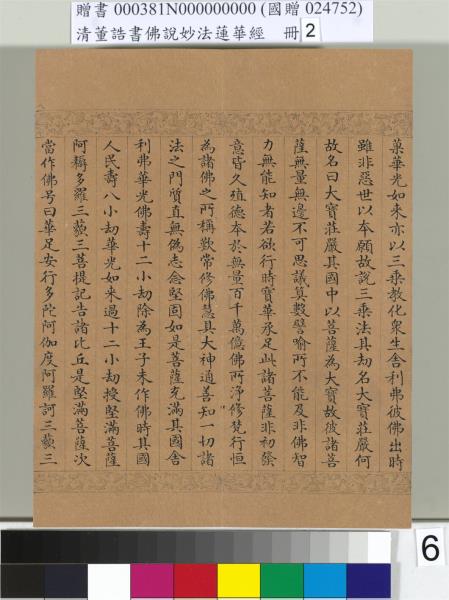 贈書 000381N000000000 (國贈 024752)
清董誥書佛說妙法蓮華經 冊 2
菓華光如来亦以三乘教化衆生舎利弗彼佛出時
雖非惡世以本願故說三乘法其劫名大寶莊嚴何
故名曰大寶莊嚴其國中以菩薩為大寶故彼諸菩
薩無量無邊不可思議筭數譬喻所不能及非佛智
力無能知者若欲行時寶華承足此諸菩薩非初發
意皆久殖德本於無量百千萬億佛所淨修梵行恒
為諸佛之所稱歎常修佛慧具大神通善知一切諸
法之門質直無偽志念堅固如是菩薩充滿其國舎
利弗華光佛壽十二小劫除為王子未作佛時其國
人民壽八小劫華光如来過十二小劫授堅滿菩薩
阿耨多羅三藐三菩提記告諸比丘是堅滿菩薩次
當作佛号曰華足安行多陀阿伽度阿羅訶三藐三
6